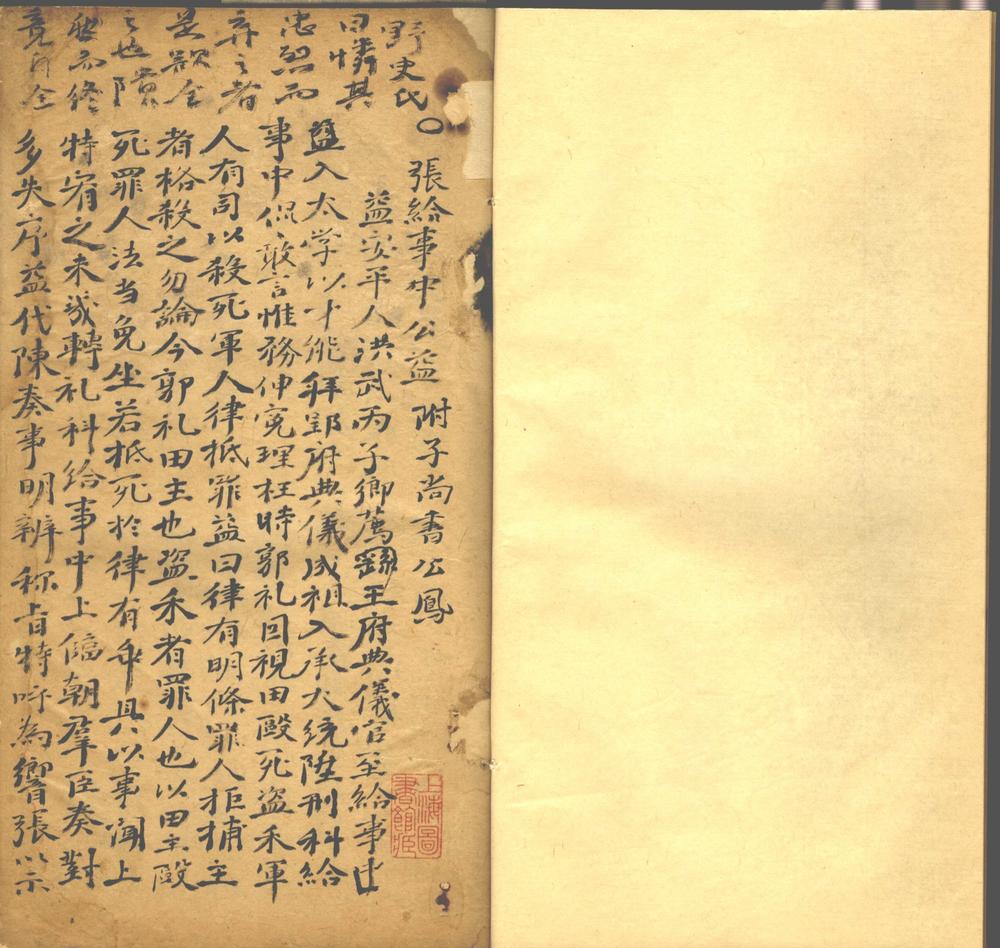 野史氏
曰憐其
忠烈而
弃之者
是歟全
之也隕
竟自全
○張給事中公益 附子尚書公鳳
益安平人洪武丙子鄉薦王府典儀官至給事中
益入太学以才能拜郢府典儀成祖入承大統陞刑科給
事中侃敢言惟務伸寃理枉時郭礼回視田毆死盜禾軍
人有司以殺死軍人律抵罪益曰律有明條罪人拒捕主
者格殺之勿論今郭礼田主也盜禾者罪人也以田主毆
死罪人法当免坐若抵死於律有乖具以事聞上
特宥之未幾轉礼科給事中上臨朝羣臣奏對
多失序益代陳奏事明辨称旨特呼為響張以示
上海圖書館藏